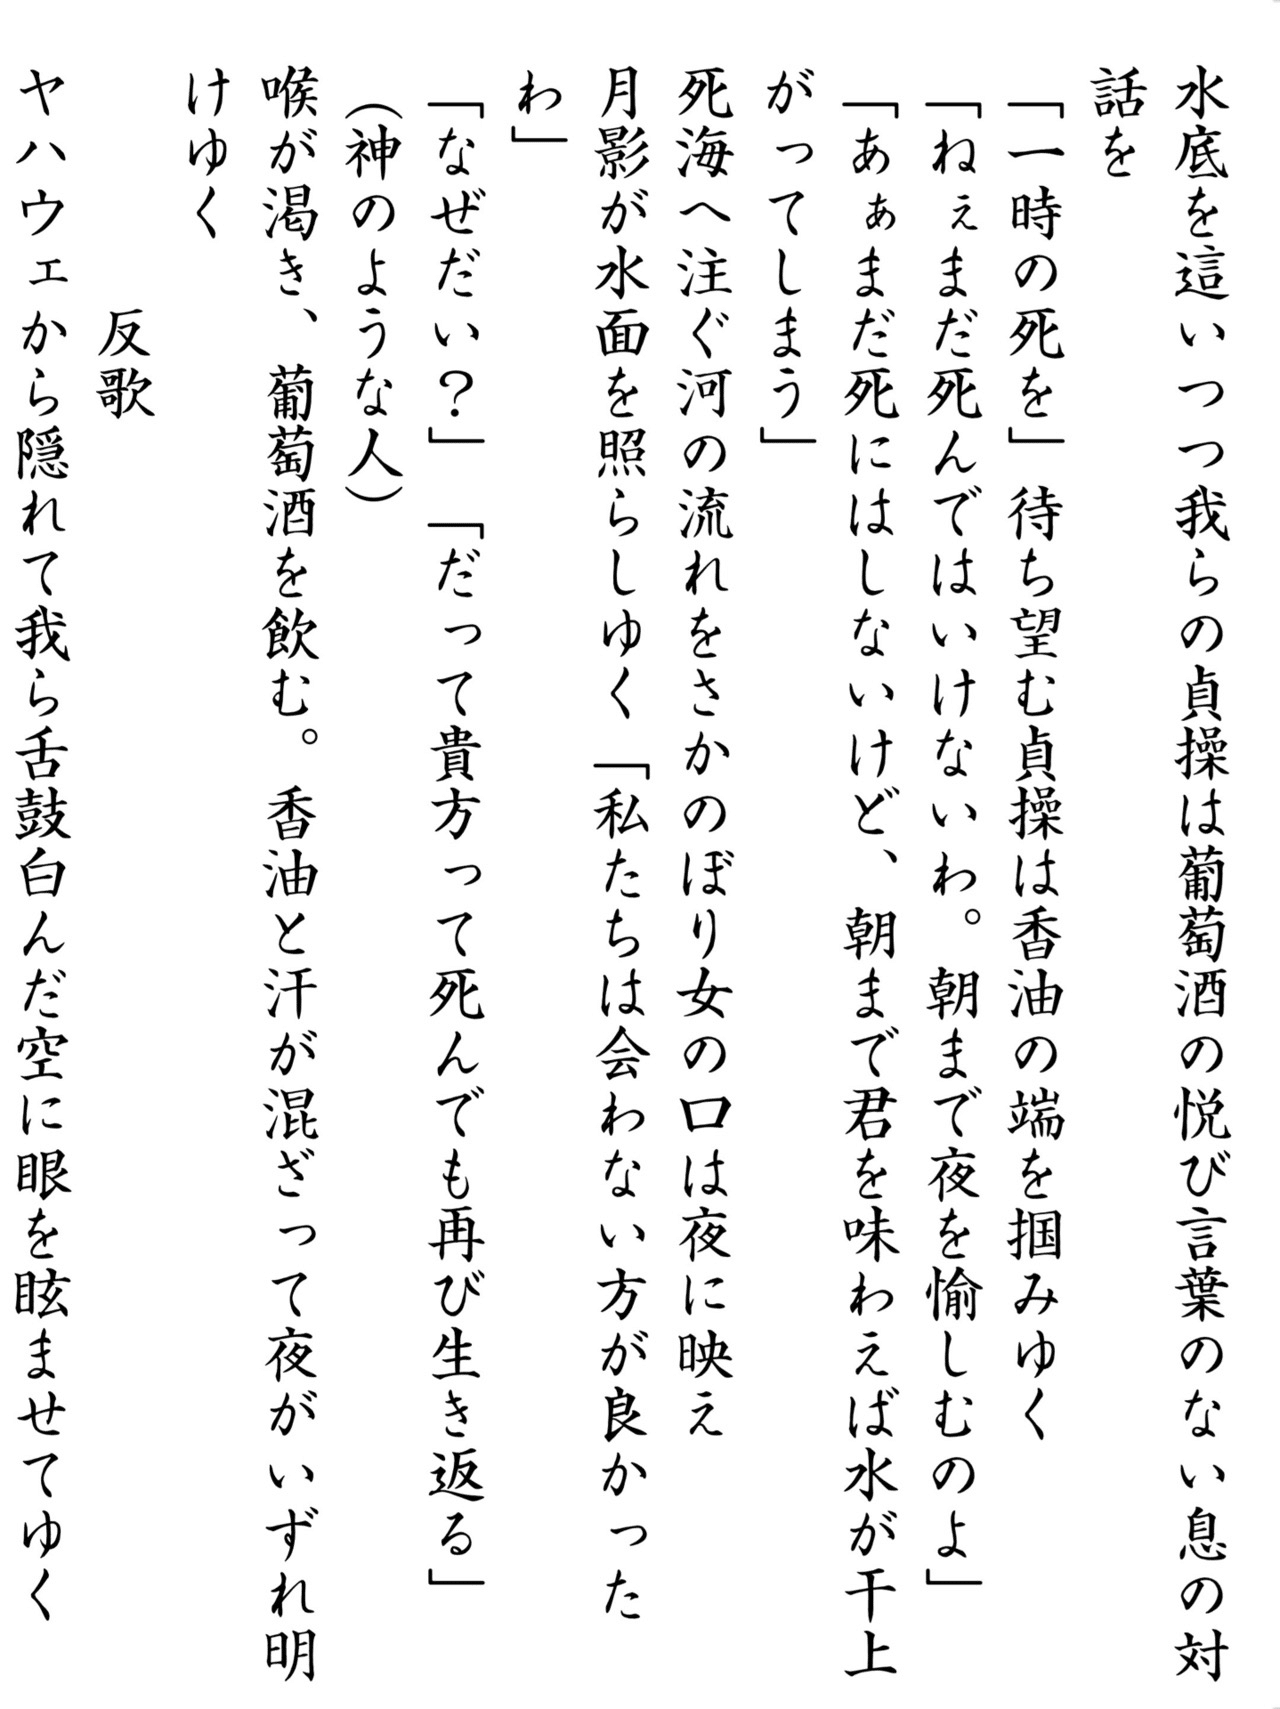 水底を這いつつ我らの貞操は葡萄酒の悦び言葉のない息の対
話を
「一時の死を」待ち望む貞操は香油の端を掴みゆく
「ねぇまだ死んではいけないわ。朝まで夜を愉しむのよ」
「あぁまだ死にはしないけど、朝まで君を味わえば水が干上
がってしまう」
死海へ注ぐ河の流れをさかのぼり女の口は夜に映え
月影が水面を照らしゆく「私たちは会わない方が良かった
わ」
「なぜだい？」「だって貴方って死んでも再び生き返る」
（神のような人）
喉が渇き、葡萄酒を飲む。香油と汗が混ざって夜がいずれ明
けゆく
反歌
ヤハウェから隠れて我ら舌鼓白んだ空に眼を眩ませてゆく